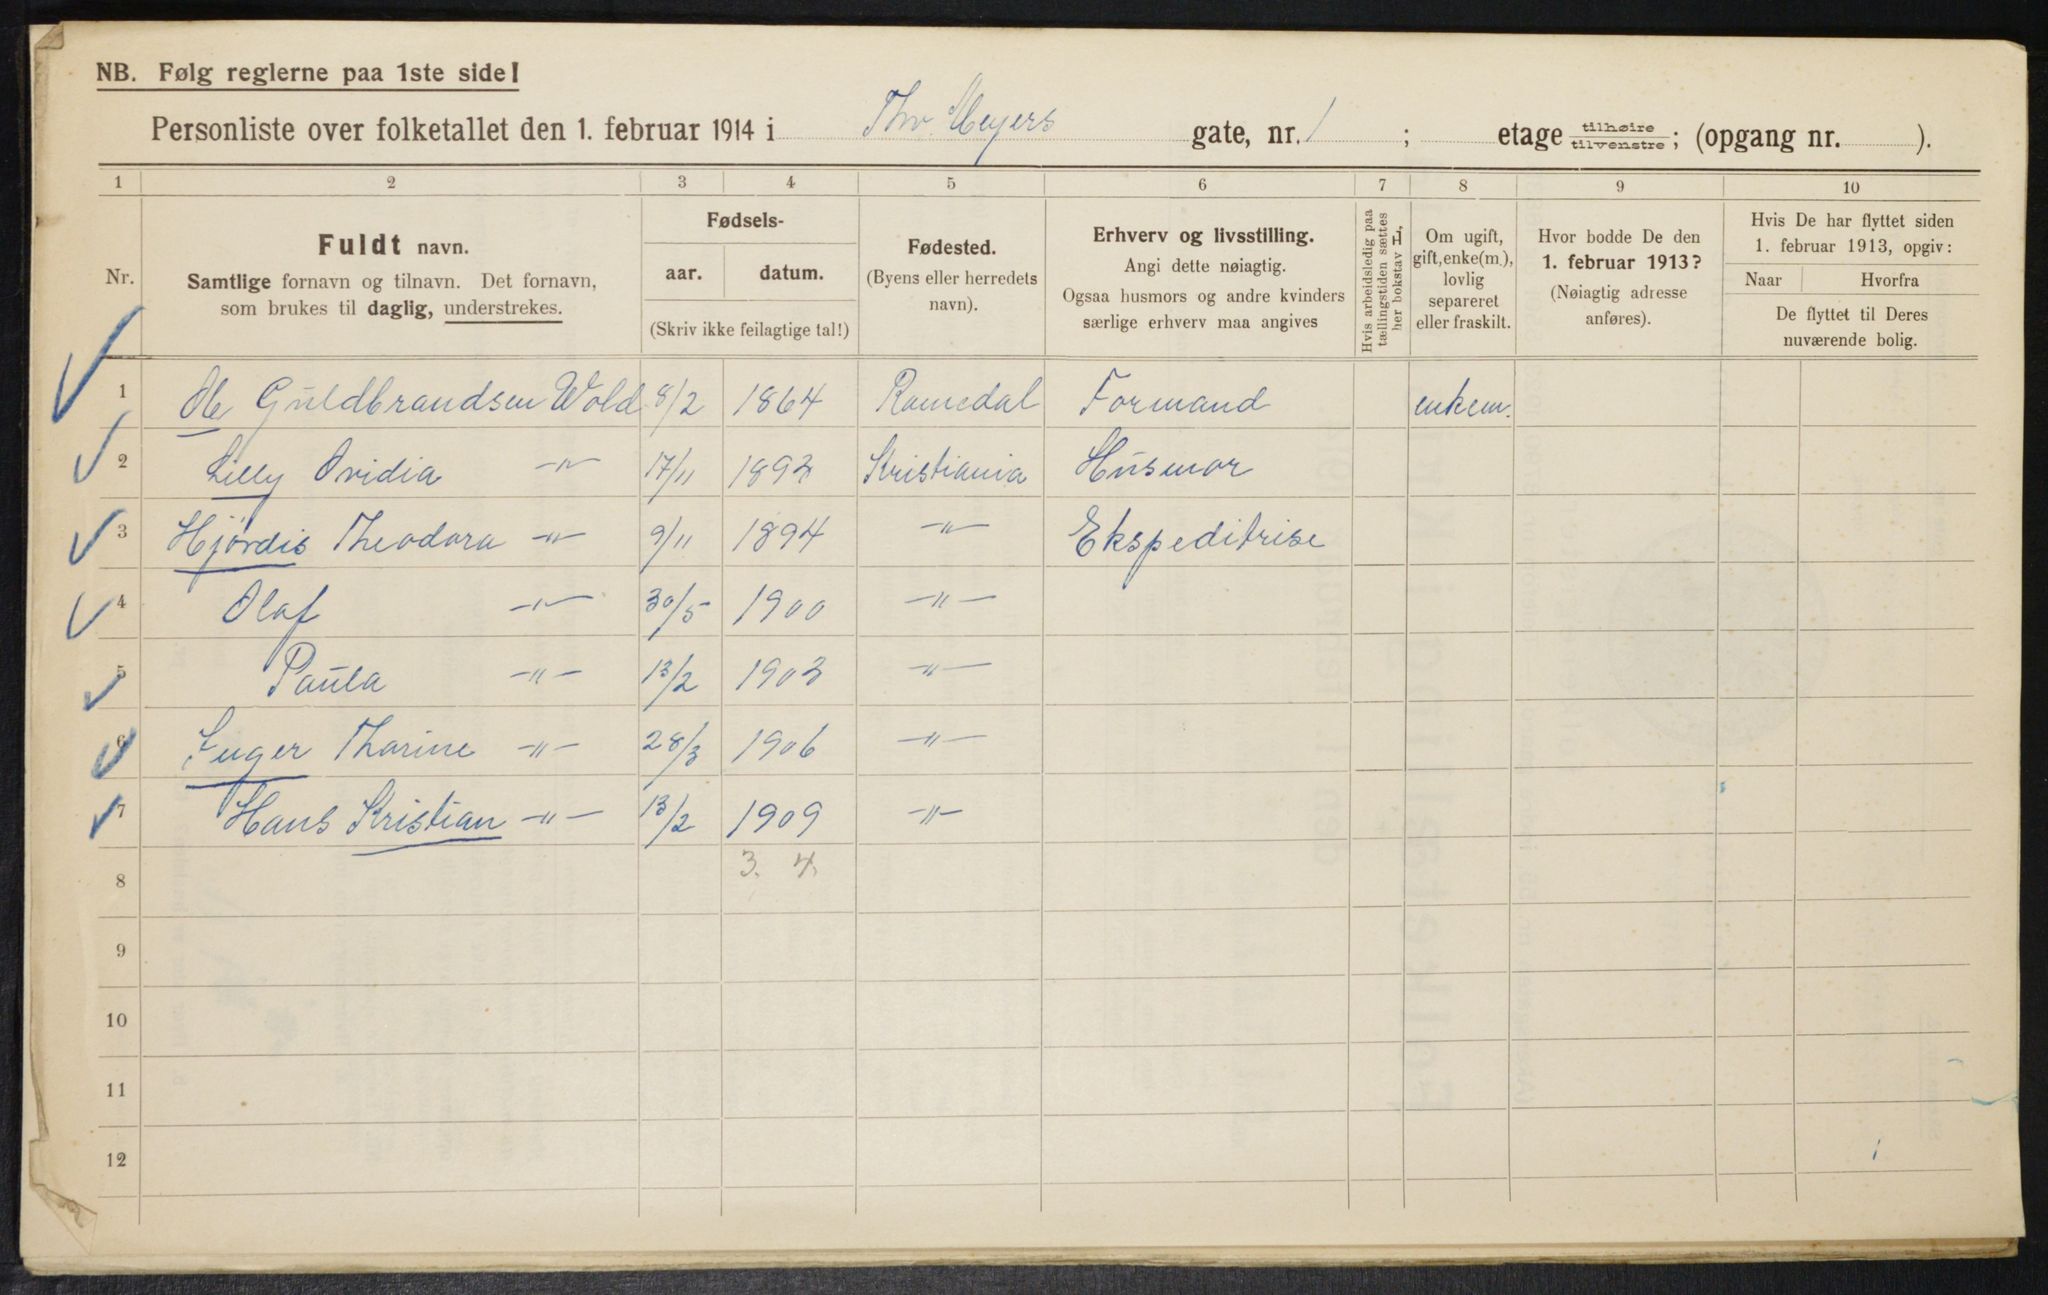 NB. Følg reglerne paa 1ste side!
Personliste over folketallet den 1. februar 1914 i Thv. Meyers gate, nr. 1 ; etage tilhøire tilvenstre ; (opgang nr. ).
1 2 3 4 5 6 7 8 9 10
Nr.
Fuldt navn.
Samtlige fornavn og tilnavn. Det fornavn,
som brukes til daglig, understrekes.
Fødsels-
aar. datum.
(Skriv ikke feilagtige tal!)
Fødested.
(Byens eller herredets
navn).
Erhverv og livsstilling.
Angi dette nøiagtig.
Ogsaa husmors og andre kvinders
særlige erhverv maa angives
Hvis arbeidsledig paa
tællingstiden sættes
her bokstav H.
Om ugift,
gift, enke(m.),
lovlig
separeret
eller fraskilt.
Hvor bodde De den
1. februar 1913?
(Nøiagtig adresse
anføres).
Hvis De har flyttet siden
1. februar 1913, opgiv:
Naar Hvorfra
De flyttet til Deres
nuværende bolig.
1 Ole Guldbrandsen Wold 8/2 1864 Romedal Formand enkem.
2 Lilly Ovidia -"- 17/11 1892 Kristiania Husmor
3 Hjördis Theodora -"- 9/11 1894 -"- Ekspeditrise
4 Olaf -"- 30/5 1900 -"-
5 Paula -"- 13/2 1903 -"-
6 Inger Thorine -"- 28/3 1906 -"-
7 Hans Kristian -"- 13/2 1909 -"-
3. 4.
8
9
10
11
12